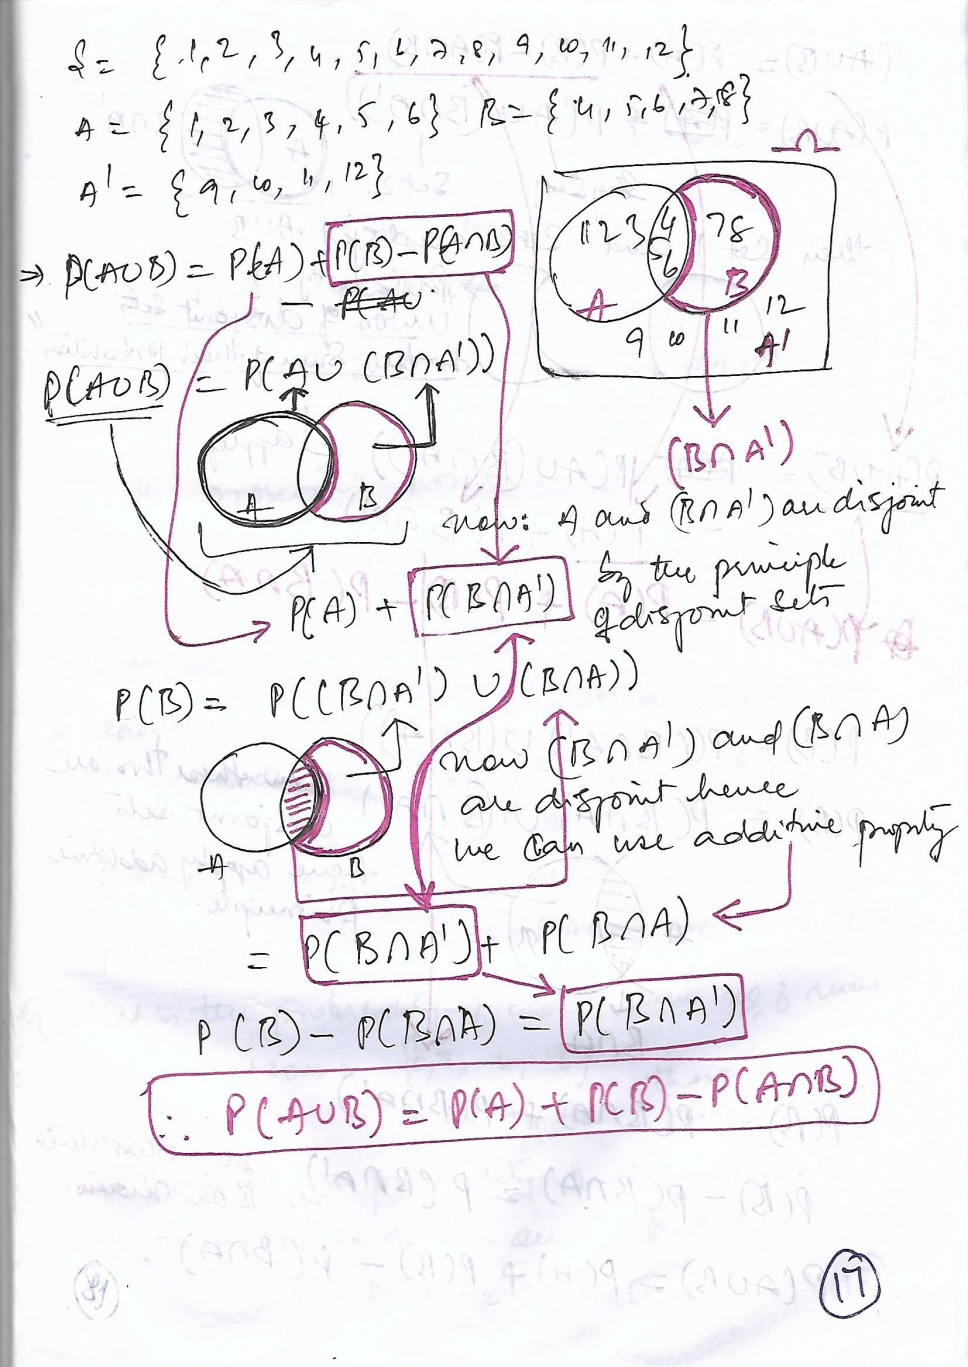 S = {1, 2, 3, 4, 5, 6, 7, 8, 9, 10, 11, 12}
A = {1, 2, 3, 4, 5, 6} B = {4, 5, 6, 7, 8}
A' = {9, 10, 11, 12}
Ω
1 2 3 4 5 6 7 8
A B
9 10 11 12 A'
⇒ P(A∪B) = P(A) + P(B) - P(A∩B)
- P(A∪
P(A∪B) = P(A∪ (B∩A'))
(B∩A')
A B
now: A and (B∩A') are disjoint
by the principle
of disjoint sets
P(A) + P(B∩A')
P(B) = P((B∩A') ∪ (B∩A))
now (B∩A') and (B∩A)
are disjoint hence
we can use additive property
A B
= P(B∩A') + P(B∩A)
P(B) - P(B∩A) = P(B∩A')
∴ P(A∪B) = P(A) + P(B) - P(A∩B)
17